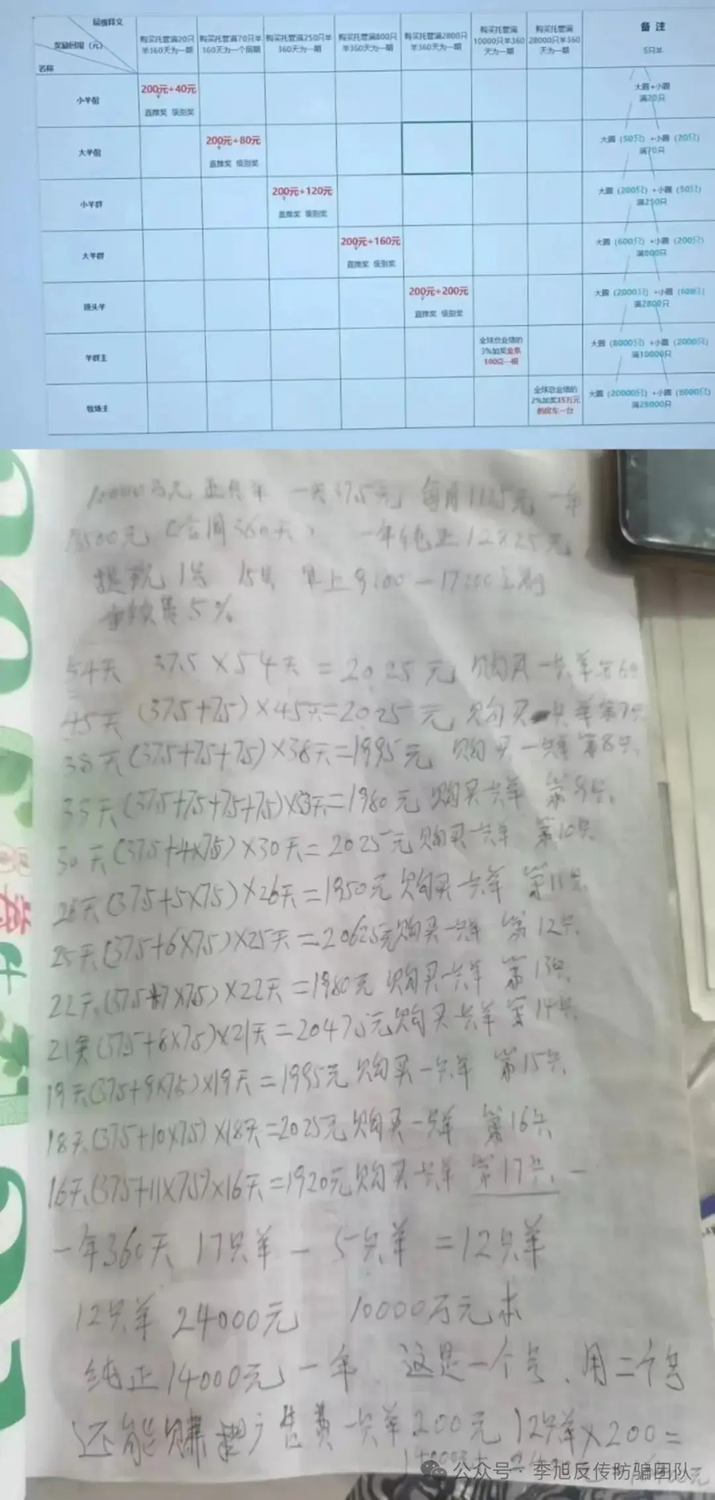 层级释义
奖励回报（元）
名称
购买托管满20只羊360天为一期
购买托管满70只羊360天为一个周期
购买托管满250只羊360天为一期
购买托管满800只羊360天为一期
购买托管满2800只羊360天为一期
购买托管满10000只羊360天为一期
购买托管满28000只羊360天为一期
备 注
5只羊
小羊倌
200元+40元
直推奖 级别奖
大圈+小圈
满20只
大羊倌
200元+80元
直推奖 级别奖
大圈（50只）+小圈（20只）
满70只
小羊群
200元+120元
直推奖 级别奖
大圈（200只）+小圈（50只）
满250只
大羊群
200元+160元
直推奖 级别奖
大圈（600只）+小圈（200只）
满800只
领头羊
200元+200元
直推奖 级别奖
大圈（2000只）+小圈（800只）
满2800只
羊群主
全球总业绩的
3%加奖金条
100克一根
大圈（8000只）+小圈（2000只）
满10000只
牧场主
全球总业绩的
2%加奖35万元
的房车一台
大圈（20000只）+小圈（8000只）
满28000只
10000万元 一天37.5元 每月1125元 一年
13500元（合同360天） 一年纯正12825元
提现 1 早上9:00-17:00
手续费5%
54天 37.5×54天=2025元 购买一只羊第6只
45天(37.5+7.5)×45天=2025元 购买一只羊第7只
38天(37.5+7.5+7.5)×38天=1995元 购买一只羊第8只
33天(37.5+7.5+7.5+7.5)×33天=1980元购买一只羊 第9只
30天(37.5+4×7.5)×30天=2025元购买一只羊 第10只
26天(37.5+5×7.5)×26天=1950元购买一只羊 第11只
25天(37.5+6×7.5)×25天=2062.5元购买一只羊 第12只
22天(37.5+7×7.5)×22天=1980元购买一只羊 第13只
21天(37.5+8×7.5)×21天=2047.5元购买一只羊第14只
19天(37.5+9×7.5)×19天=1995元购买一只羊 第15只
18天(37.5+10×7.5)×18天=2025元购买一只羊 第16只
16天(37.5+11×7.5)×16天=1920元购买一只羊 第17只
一年360天 17只羊－5只羊=12只羊
12只羊 24000元 10000万元本
纯正14000元一年、这是一个号、用二个号
还能赚推广费一只羊200元 12只羊×200=
公众号·李旭反传防骗团队